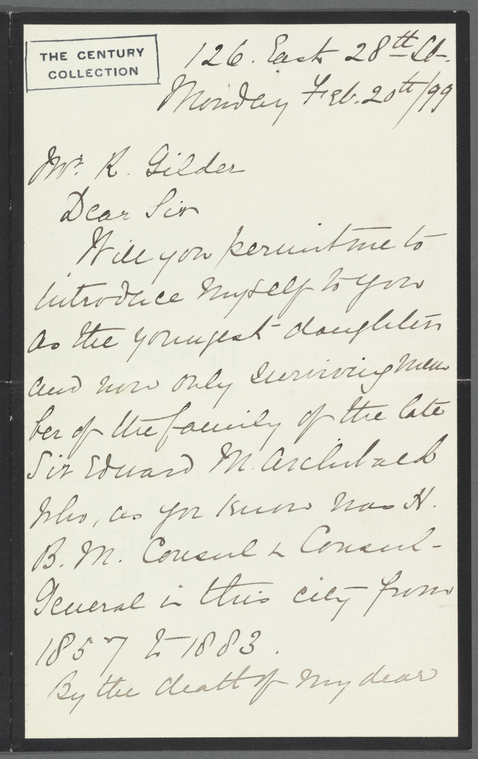 THE CENTURY
COLLECTION
126. East 28th St.
Monday Feb. 20th/99
Mr. R. Gilder
Dear Sir
Will you permit me to
introduce myself to you
as the youngest daughter
and now only surviving mem
ber of the family of the late
Sir Edward M. Archibald
who, as you know was H.
B. M. Consul & Consul-
General in this city from
1857 to 1883.
By the death of my dear